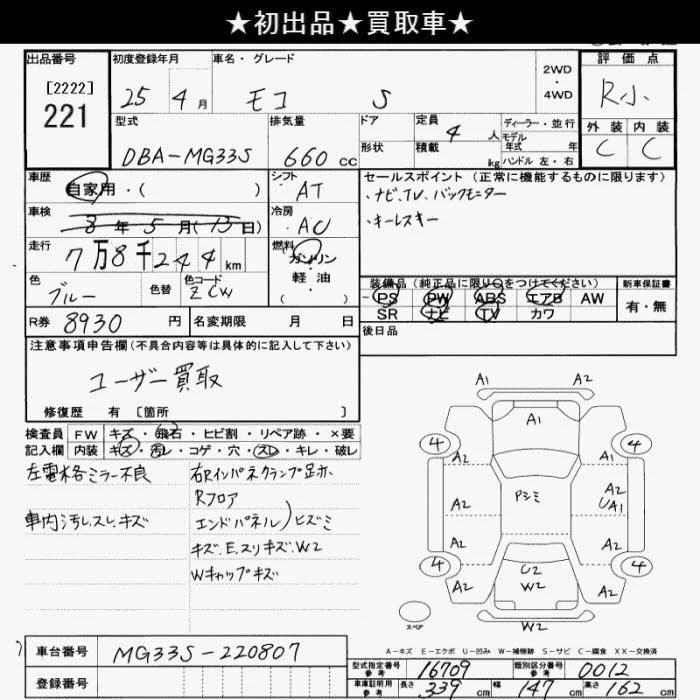 ★初出品★買取車★
出品番号 初度登録年月 車名・グレード 評価点
[2222]
221
25年 4月 モコ S 2WD・4WD R小
型式 排気量 ドア 定員 4人 ディーラー・並行 外装 内装
モデル年式 年
DBA-MG33S 660cc 形状 積載 kg ハンドル 左・右 C C
車歴 自家用・( ) シフト AT セールスポイント(正常に機能するものに限ります)
・ナビ,TV,バックモニター
車検 8年5月(13日) 冷房 AC ・キーレスキー
走行 7万8千244km 燃料 ガソリン・軽油・( )
色 ブルー 色替 色コード ZCW
装備品(純正品に限り○をつけてください) 新車保証書
PS PW ABS エアB AW 有・無
SR ナビ TV カワ
R券 8930円 名変期限 月 日 後日品
注意事項申告欄(不具合内容等は具体的に記入して下さい)
ユーザー買取
修復歴 有 [箇所 ]
検査員 FW キズ・飛石・ヒビ割・リペア跡・×要
記入欄 内装 キズ・汚レ・コゲ・穴・スレ・キレ・破レ
左電格ミラー不良
車内汚レ.スレ.キズ
右Rインパネクランプ足ホ、
Rフロア
エンドパネル)ヒズミ
キズ.E.スリキズ.W2
Wキャップキズ
A1 A2
A1
4 4
A2 Pシミ A2
A2 A2
UA1
A2 A2
4 4
U2
W2
A2 A2
スペア W2
A-キズ E-エクボ U-凹み W-補修跡 S-サビ C-腐食 XX-交換済
車台番号 MG33S-220807
登録番号
型式指定番号 参考 16709 類別区分番号 参考 0012
車庫証明用 参考 長さ 339cm 幅 147cm 高さ 162cm